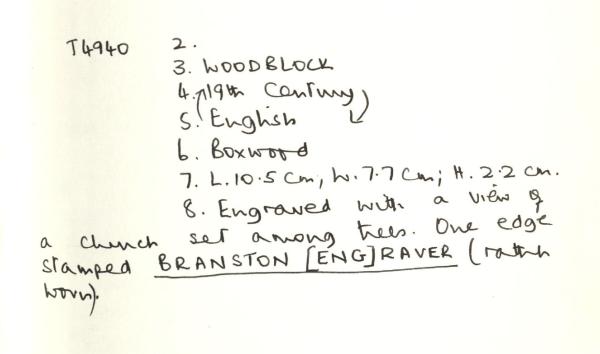 T4940 2.
3. WOODBLOCK
4. 19th Century
5. English
6. Boxwood
7. L. 10.5 cm; W. 7.7 cm; H. 2.2 cm.
8. Engraved with a view of
a church set among trees. One edge
stamped BRANSTON [ENG]RAVER (rather
worn).